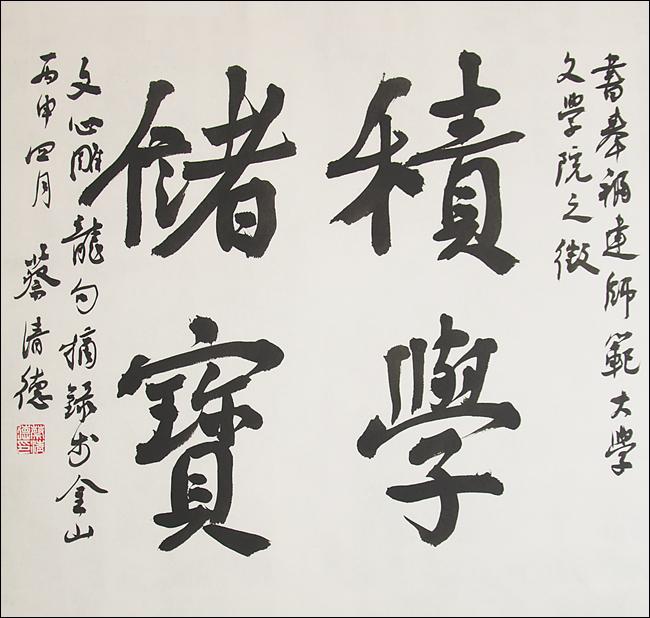 書奉福建師範大学
文学院之徵
積學
儲寶
文心雕龍句摘録於金山
丙申四月 蔡清德